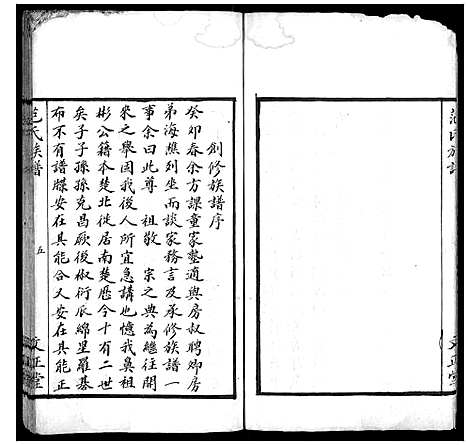 創修族譜序
癸卯春余方課童家塾適與房叔聘卿房
弟海樵列坐而談家務言及承修族譜一
事余曰此尊 祖敬 宗之典為繼往開
來之舉固我後人所宜急講也憶我鼻祖
彬公籍本楚北徙居南楚歷今十有二世
矣子子孫孫克昌厥後椒衍瓜綿星羅棊
布不有譜牒安在其能合又安在其能正
范氏族譜
五
文正堂
范氏族譜
文正堂